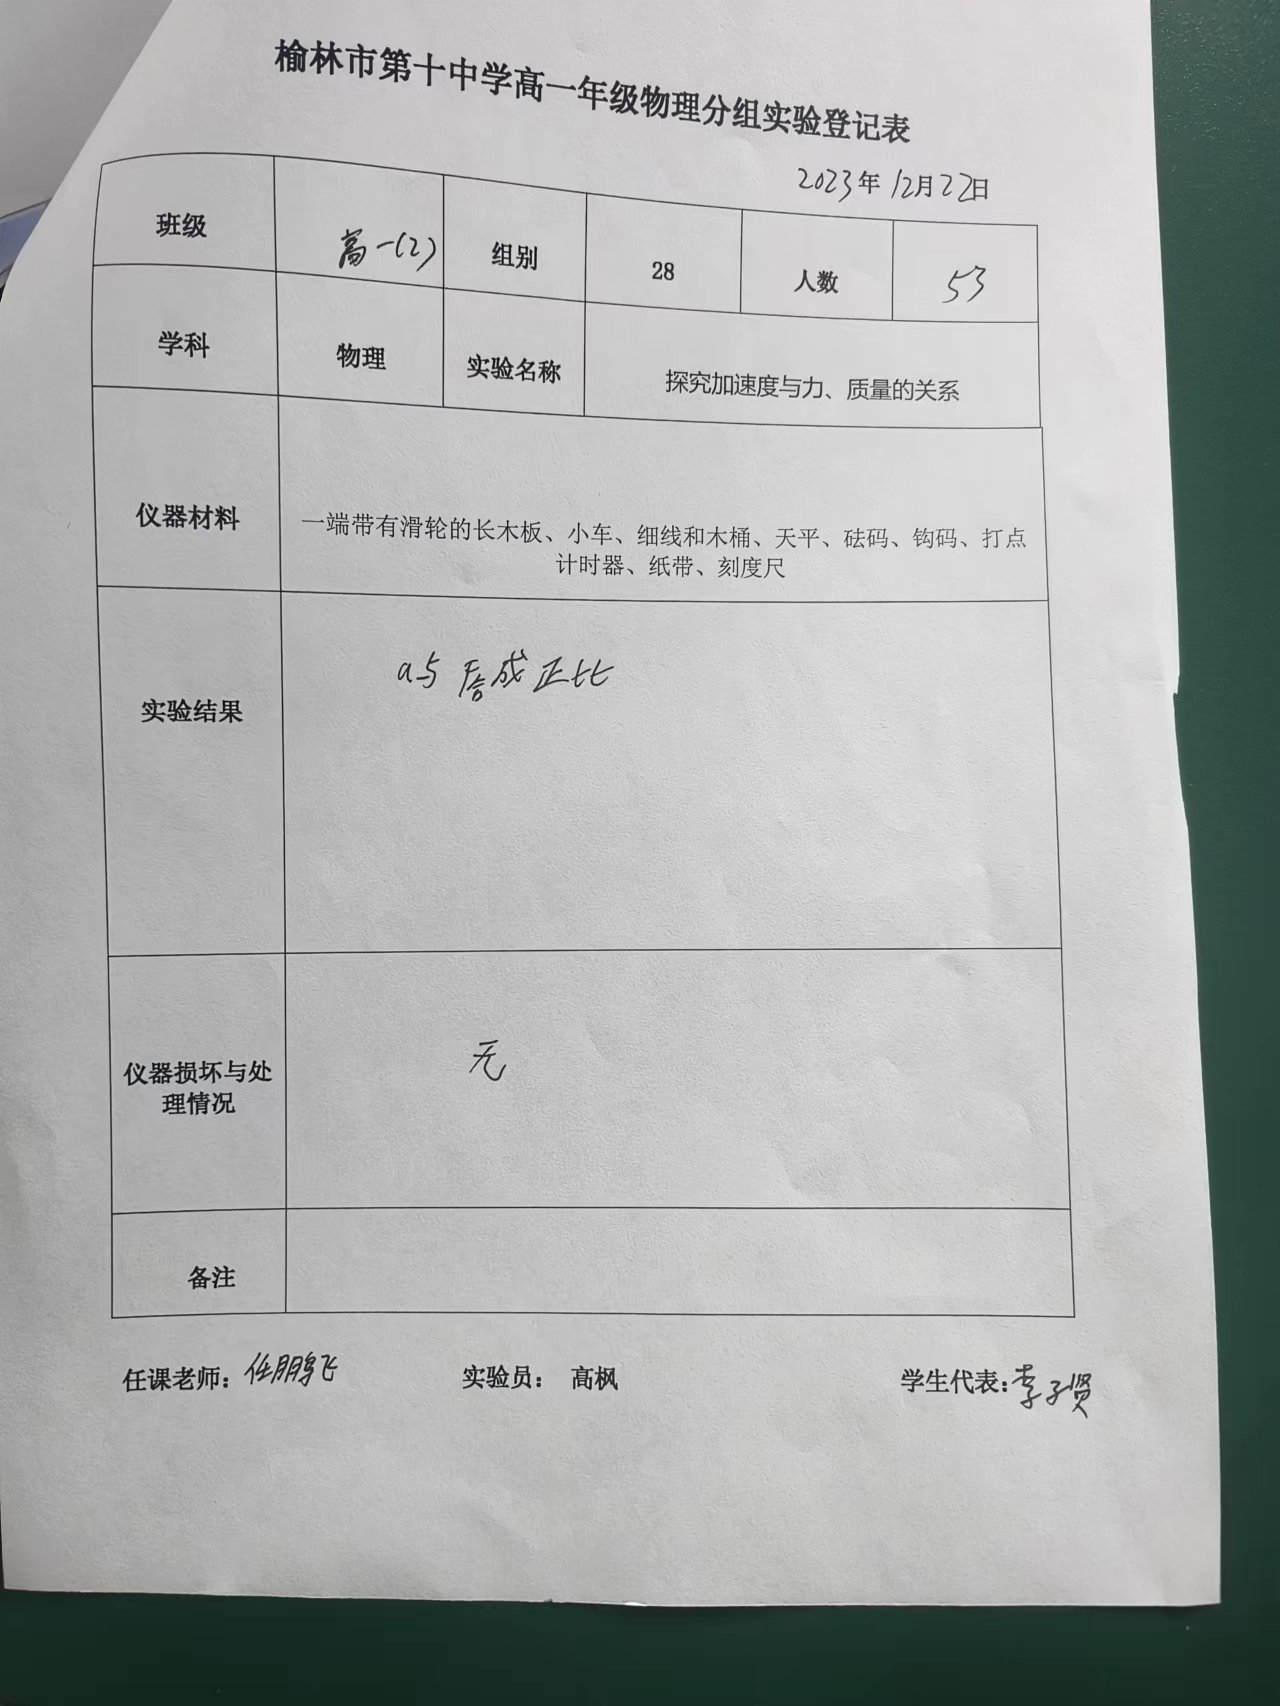 榆林市第十中学高一年级物理分组实验登记表
2023年12月22日
班级 高一(2) 组别 28 人数 53
学科 物理 实验名称 探究加速度与力、质量的关系
仪器材料 一端带有滑轮的长木板、小车、细线和木桶、天平、砝码、钩码、打点
计时器、纸带、刻度尺
实验结果 a与F合成正比
仪器损坏与处
理情况 无
备注
任课老师：任鹏飞 实验员： 高枫 学生代表：李子贤